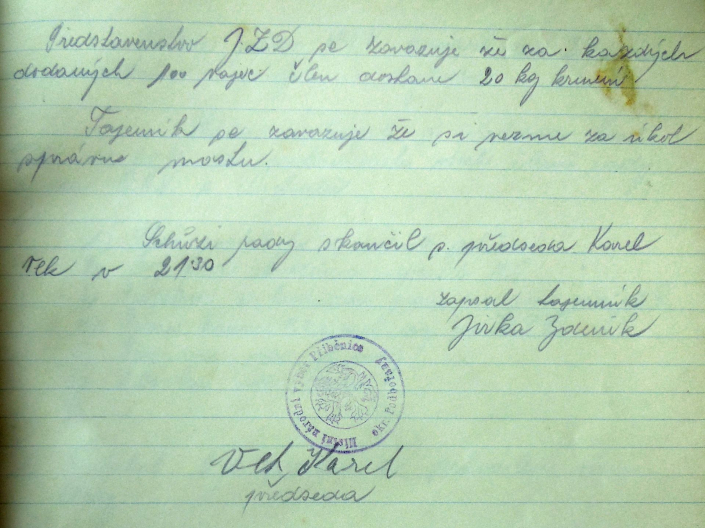 Představenstvo JZD se zavazuje že za každých
dodaných 100 vajec člen dostane 20 kg krmení
Tajemník se zavazuje že si vezme za úkol
správu mostu.
Schůzi rady skončil s. předseda Karel
Vlk v 21.30
zapsal tajemník
Jirka Zdeněk
Místní národní výbor
okr. Podbořany
Vlk Karel
předseda